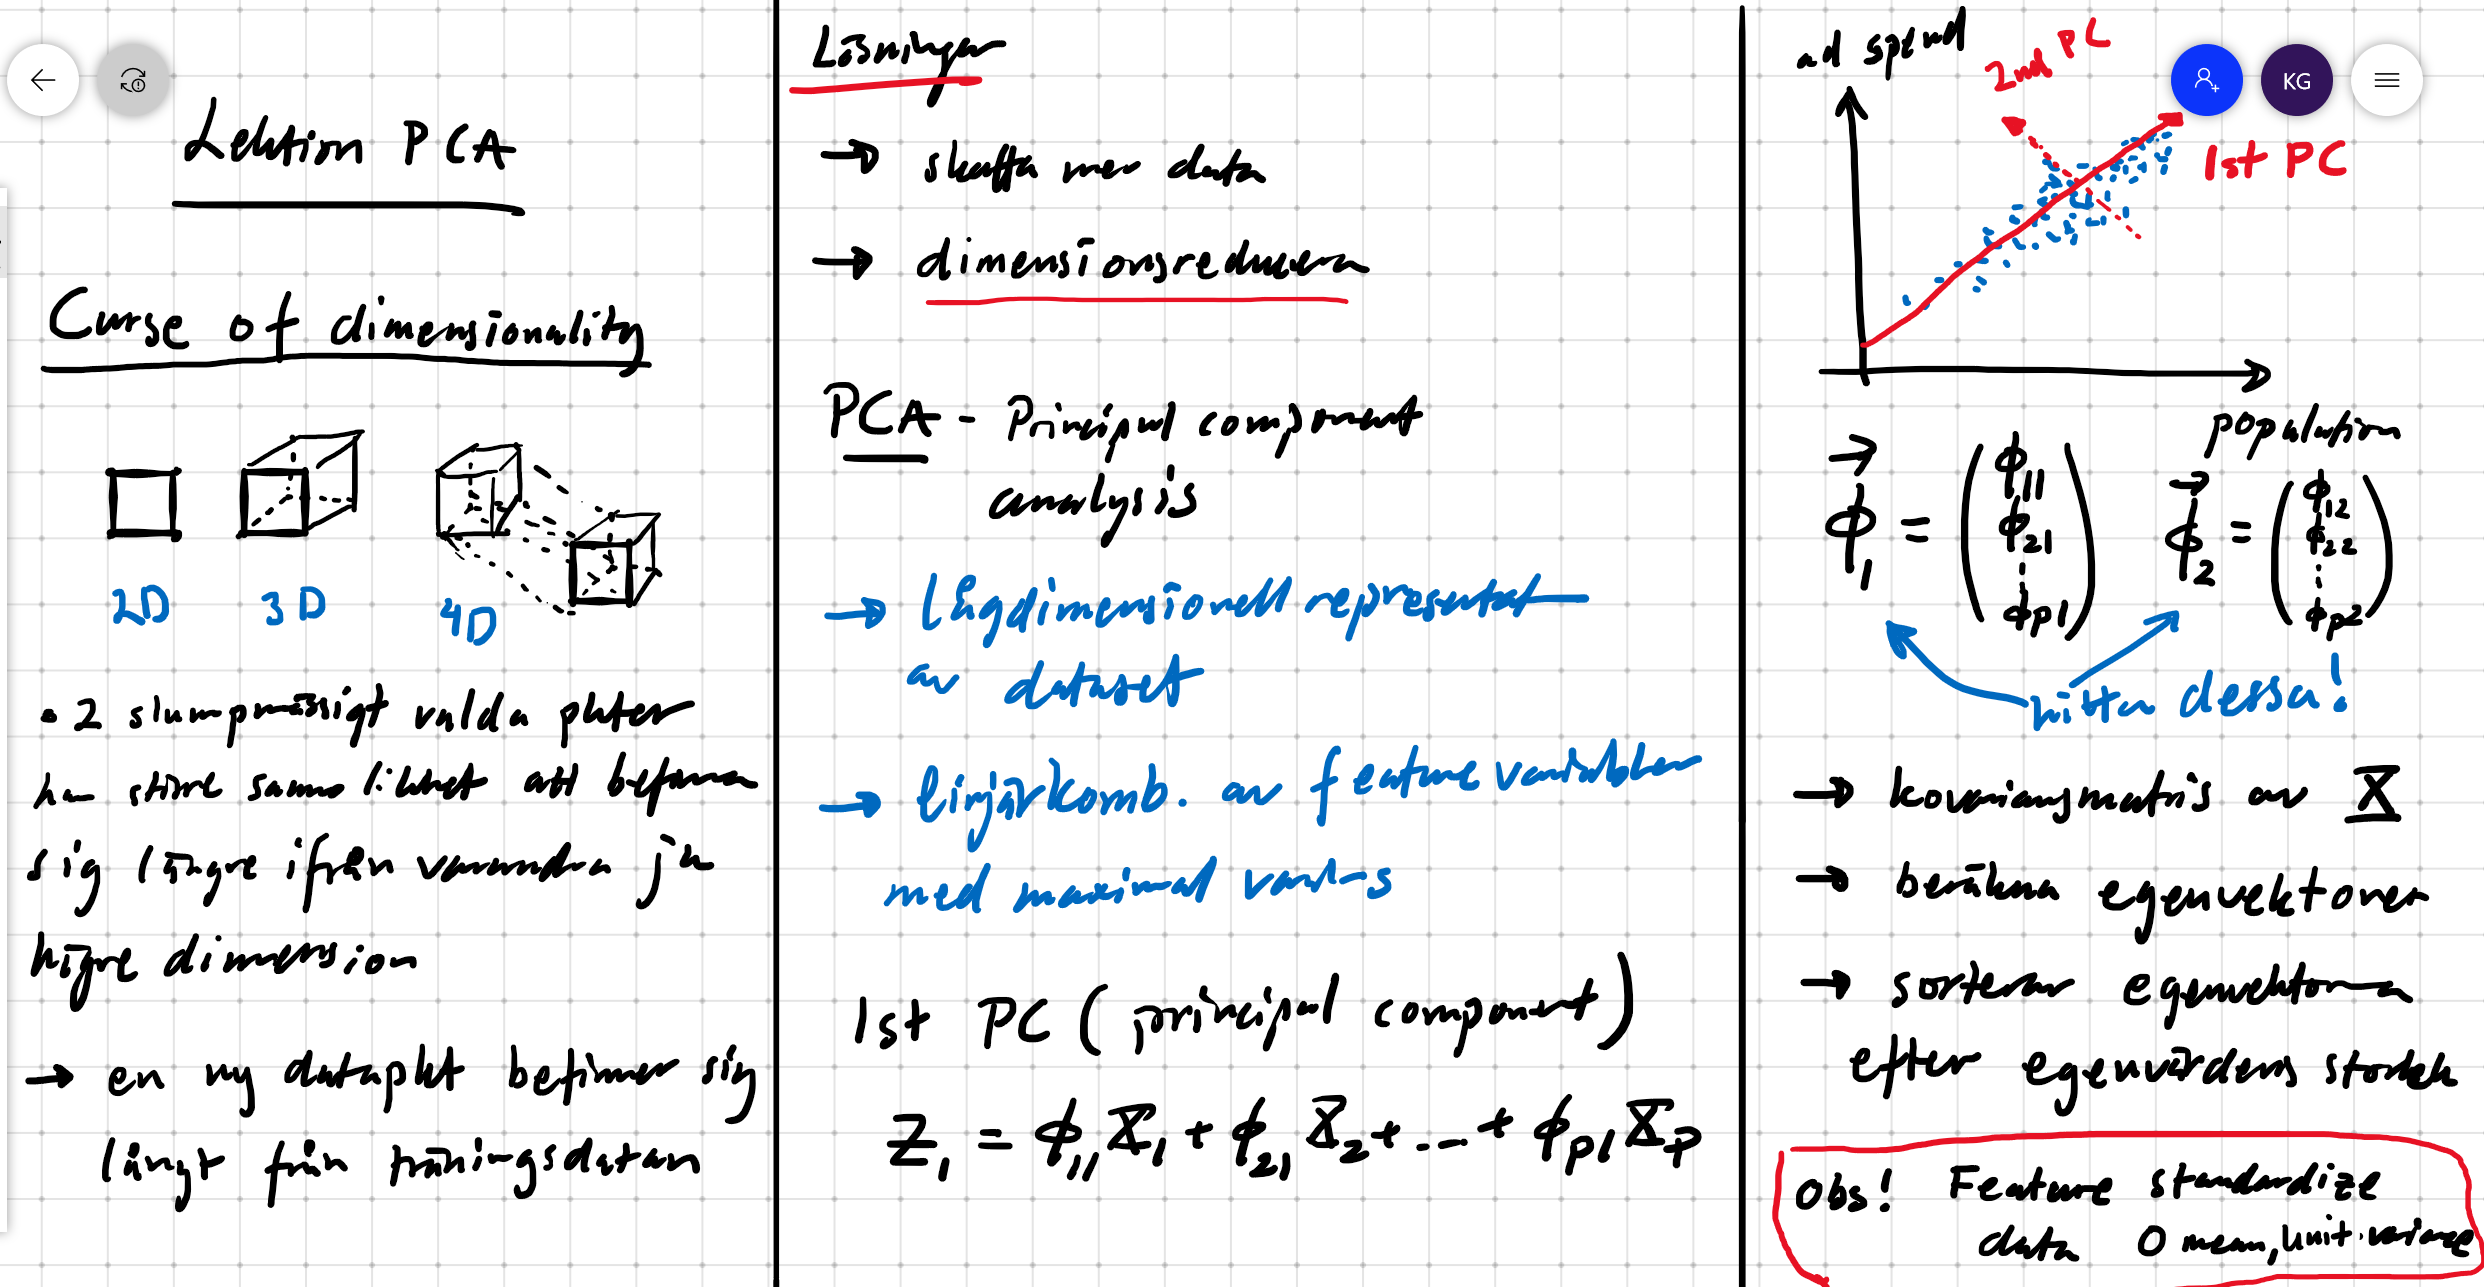 Lektion PCA
Curse of dimensionality
2D 3D 4D
• 2 slumpmässigt valda pkter
har större sannolikhet att befinna
sig längre ifrån varandra ju
högre dimension
→ en ny datapkt befinner sig
långt från träningsdatan
Lösningar
→ skaffa mer data
→ dimensionsreducera
PCA - Principal component
analysis
→ lågdimensionell representat
av dataset
→ linjärkomb. av feature variabler
med maximal varians
1st PC (principal component)
Z₁ = ϕ₁₁X₁ + ϕ₂₁X₂ + ... + ϕₚ₁Xₚ
ad spend
2nd PC
KG
1st PC
population
ϕ⃗₁ = (ϕ₁₁ ϕ₂₁ ⋮ ϕₚ₁) ϕ⃗₂ = (ϕ₁₂ ϕ₂₂ ⋮ ϕₚ₂)
hitta dessa!
→ kovariansmatris av X
→ beräkna egenvektorer
→ sorterar egenvektorerna
efter egenvärdens storlek
Obs! Feature standardize
data 0 mean, unit variance